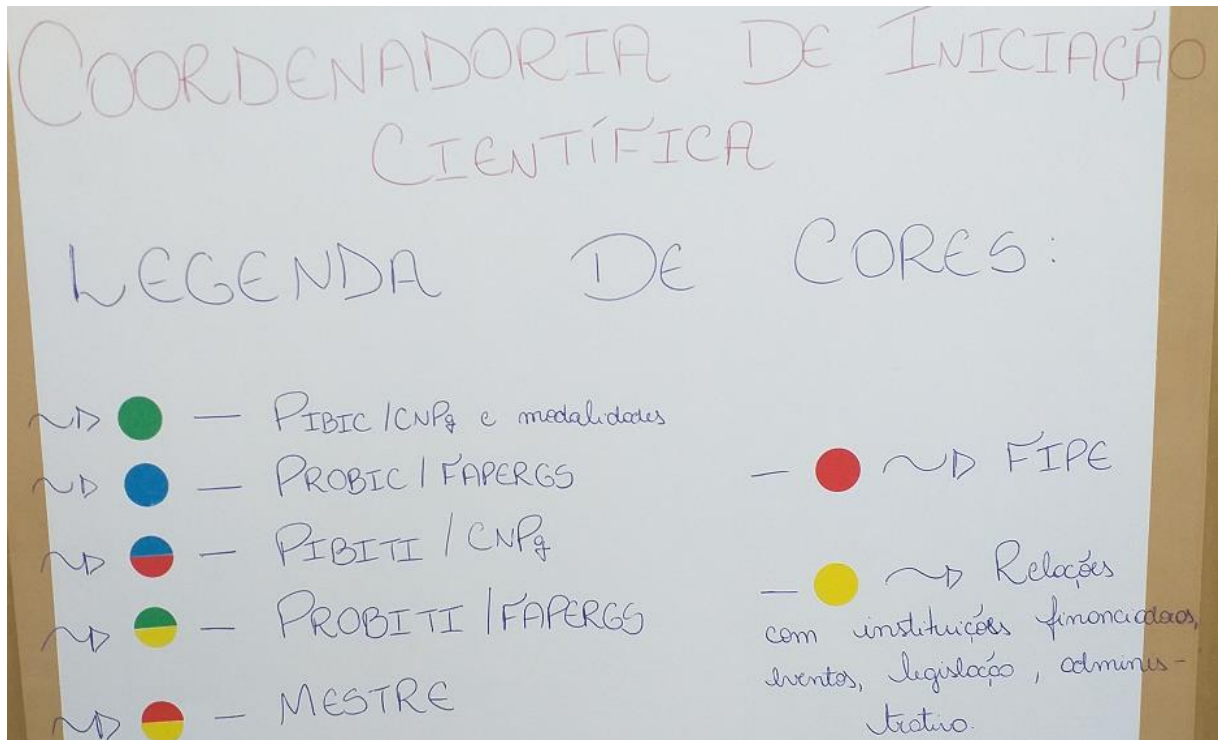 COORDENADORIA DE INICIAÇÃO
CIENTÍFICA
LEGENDA DE CORES:
— PIBIC/CNPq e modalidades
— PROBIC/FAPERGS
— PIBITI/CNPq
— PROBITI/FAPERGS
— MESTRE
— FIPE
— Relações
com instituições financiadoras,
eventos, legislação, adminis-
trativo.